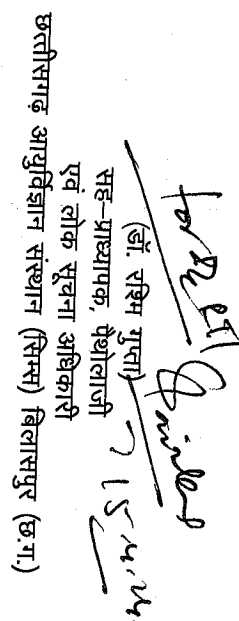 (डॉ. रश्मि गुप्ता)
सह-प्राध्यापक, पैथोलाजी
एवं लोक सूचना अधिकारी
छत्तीसगढ़ आयुर्विज्ञान संस्थान (सिम्स) बिलासपुर (छ.ग.)